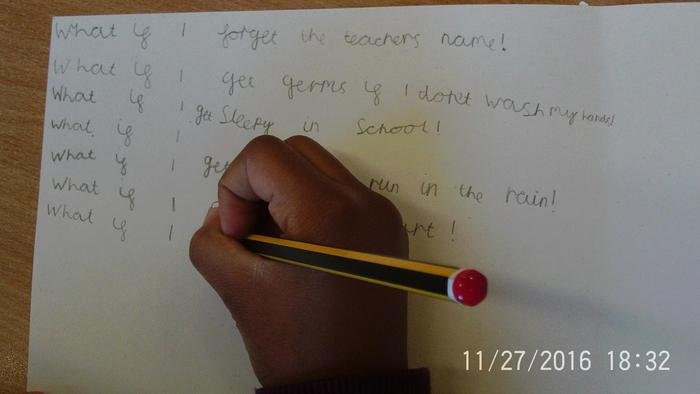 What if I forget the teachers name!
What if I get germs if I don't wash my hands!
What if I get sleepy in school!
What if I
What if I get run in the rain!
What if I
What if I !
11/27/2016 18:32